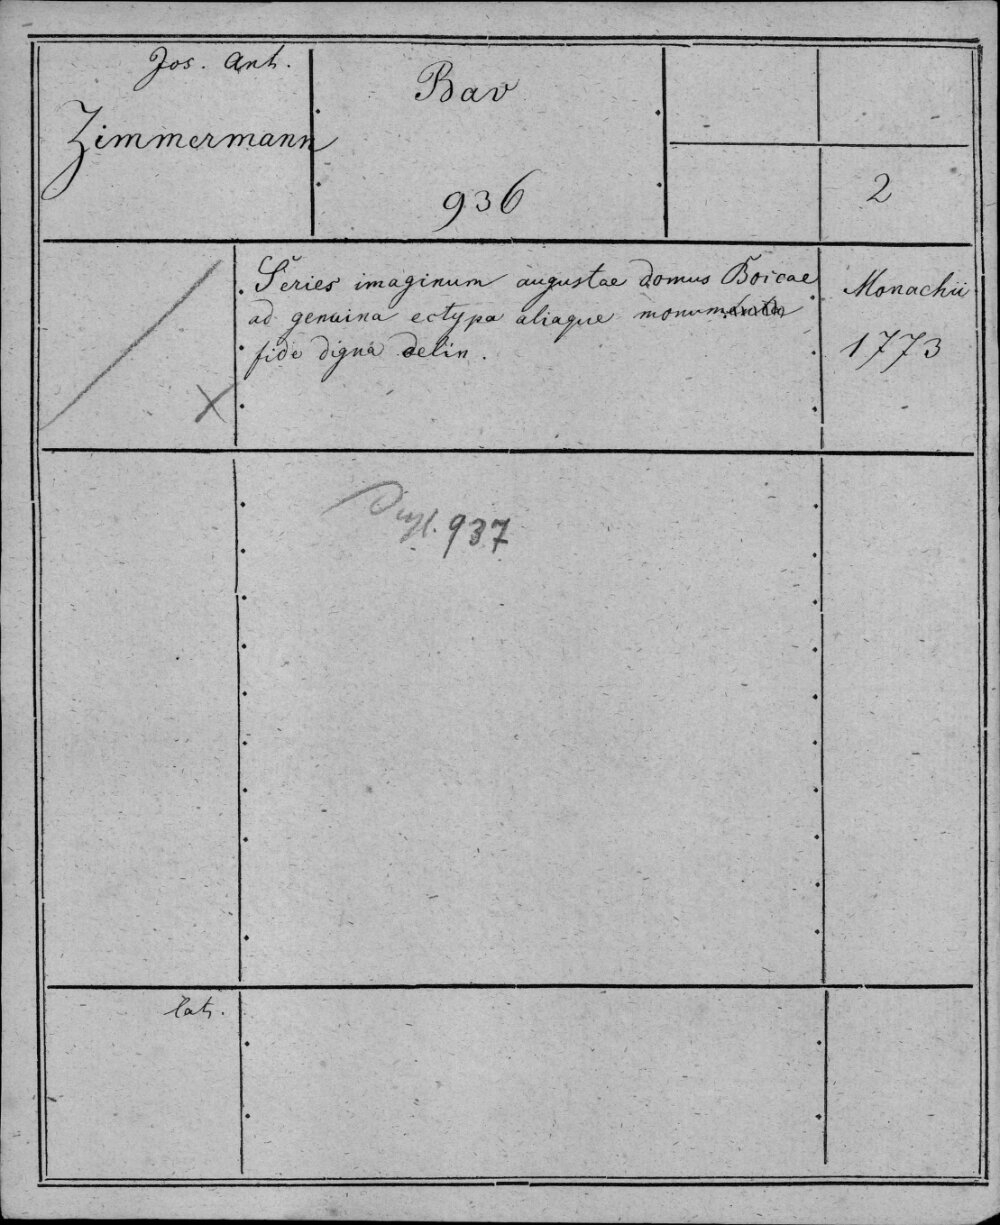 Jos. Ant.
Zimmermann
Bav
936
2
Series imaginum augustae domus Boicae
ad genuina ectypa aliaque monumenta
fide digna delin.
Monachii
1773
X
Dupl. 937
lat.